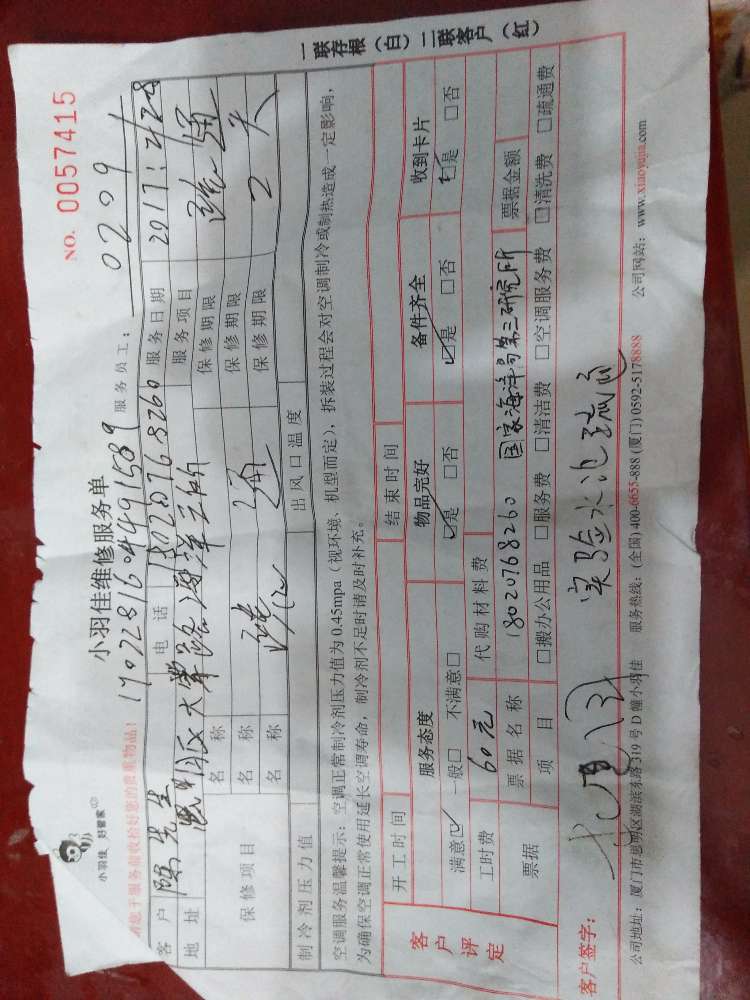 小羽佳 好管家
小羽佳维修服务单
NO. 0057415
请您于服务前收拾好您的贵重物品!
1907281604491589
服务员工: 0209
客户 陈先生 电话 18020768260 服务日期 2017.2/28
地址 思明区大学路海洋三所 服务项目 疏通
保修项目
名称 保修期限
名称 保修期限
名称 保修期限
制冷剂压力值 出风口温度
空调服务温馨提示:空调正常制冷剂压力值为0.45mpa(视环境、机型而定),拆装过程会对空调制冷或制热造成一定影响,
为确保空调正常使用延长空调寿命,制冷剂不足时请及时补充。
开工时间 结束时间
客户评定
服务态度 物品完好 备件齐全 收到卡片
满意☑ 一般□ 不满意□ ☑是 □否 ☑是 □否 ☑是 □否
工时费 60元 代购材料费
票据名称 18020768260 国家海洋局第三研究所 票据金额
票据项目 □搬办公用品 □服务费 □清洁费 □空调服务费 □清洗费 □疏通费
客户签字: 实验水池疏通
公司地址:厦门市思明区湖滨东路319号D幢小羽佳 服务热线:(全国)400-6655-888 (厦门)0592-5178888 公司网站:www.xiaoyujia.com
一联存根(白) 二联客户(红)